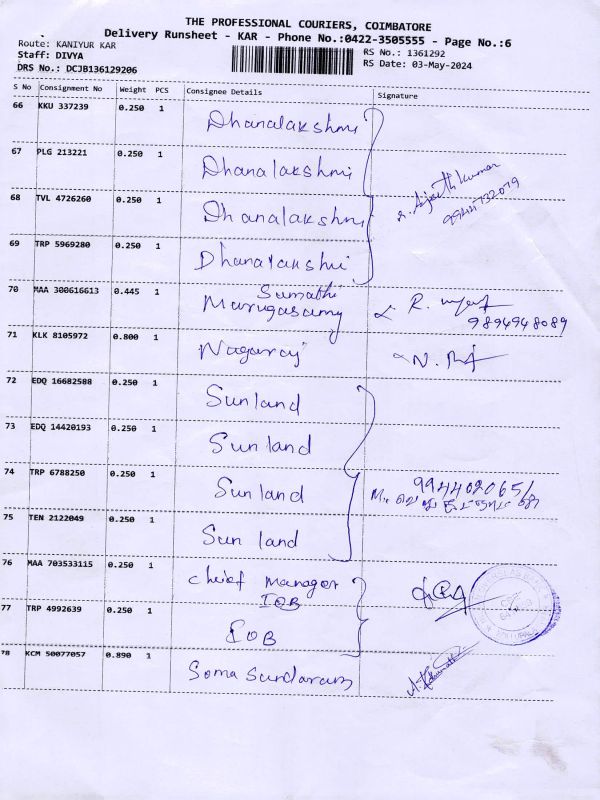 THE PROFESSIONAL COURIERS, COIMBATORE
Delivery Runsheet - KAR - Phone No.:0422-3505555 - Page No.:6
Route: KANIYUR KAR
Staff: DIVYA
DRS No.: DCJB136129206
RS No.: 1361292
RS Date: 03-May-2024
S No Consignment No Weight PCS Consignee Details Signature
66 KKU 337239 0.250 1 Dhanalakshmi
67 PLG 213221 0.250 1 Dhanalakshmi
68 TVL 4726260 0.250 1 Dhanalakshmi
69 TRP 5969280 0.250 1 Dhanalakshmi
70 MAA 300616613 0.445 1 Sumathi
Murugasamy R.
9894948089
71 KLK 8105972 0.800 1 Nagaraj N.
72 EDQ 16682588 0.250 1 Sunland
73 EDQ 14420193 0.250 1 Sunland
74 TRP 6788250 0.250 1 Sunland
75 TEN 2122049 0.250 1 Sun land
76 MAA 703533115 0.250 1 Chief Manager
IOB
77 TRP 4992639 0.250 1 IOB
78 KCM 50077057 0.890 1 Soma Sundaram